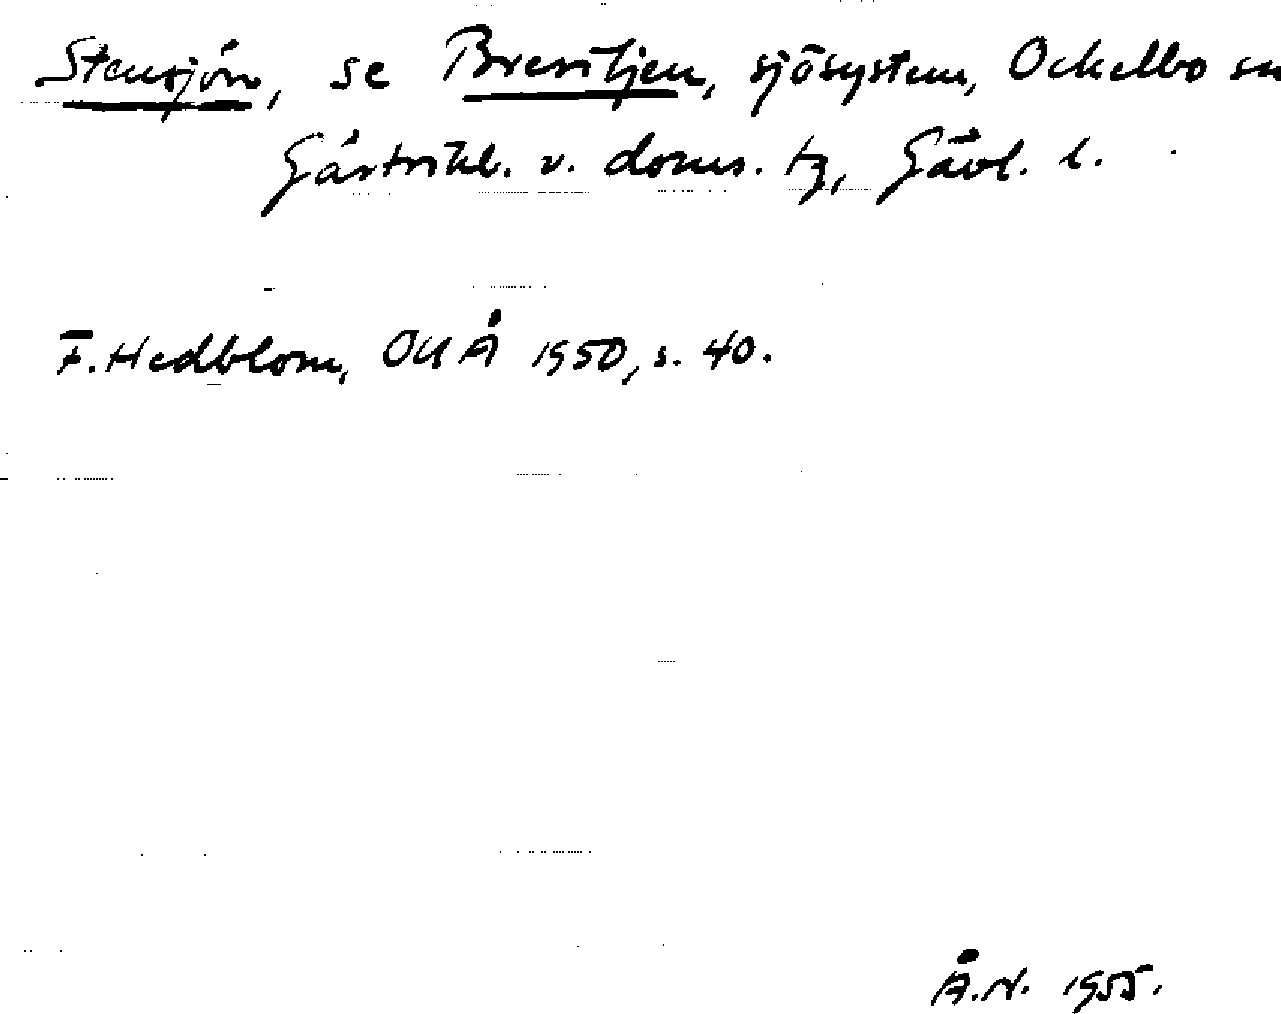 Stensjön, se Bresiljen, sjösystem, Ockelbo sn
Gästrikl. v. doms. tg, Gävl. l.
F. Hedblom, OUÅ 1950, s. 40.
Å.N. 1955.